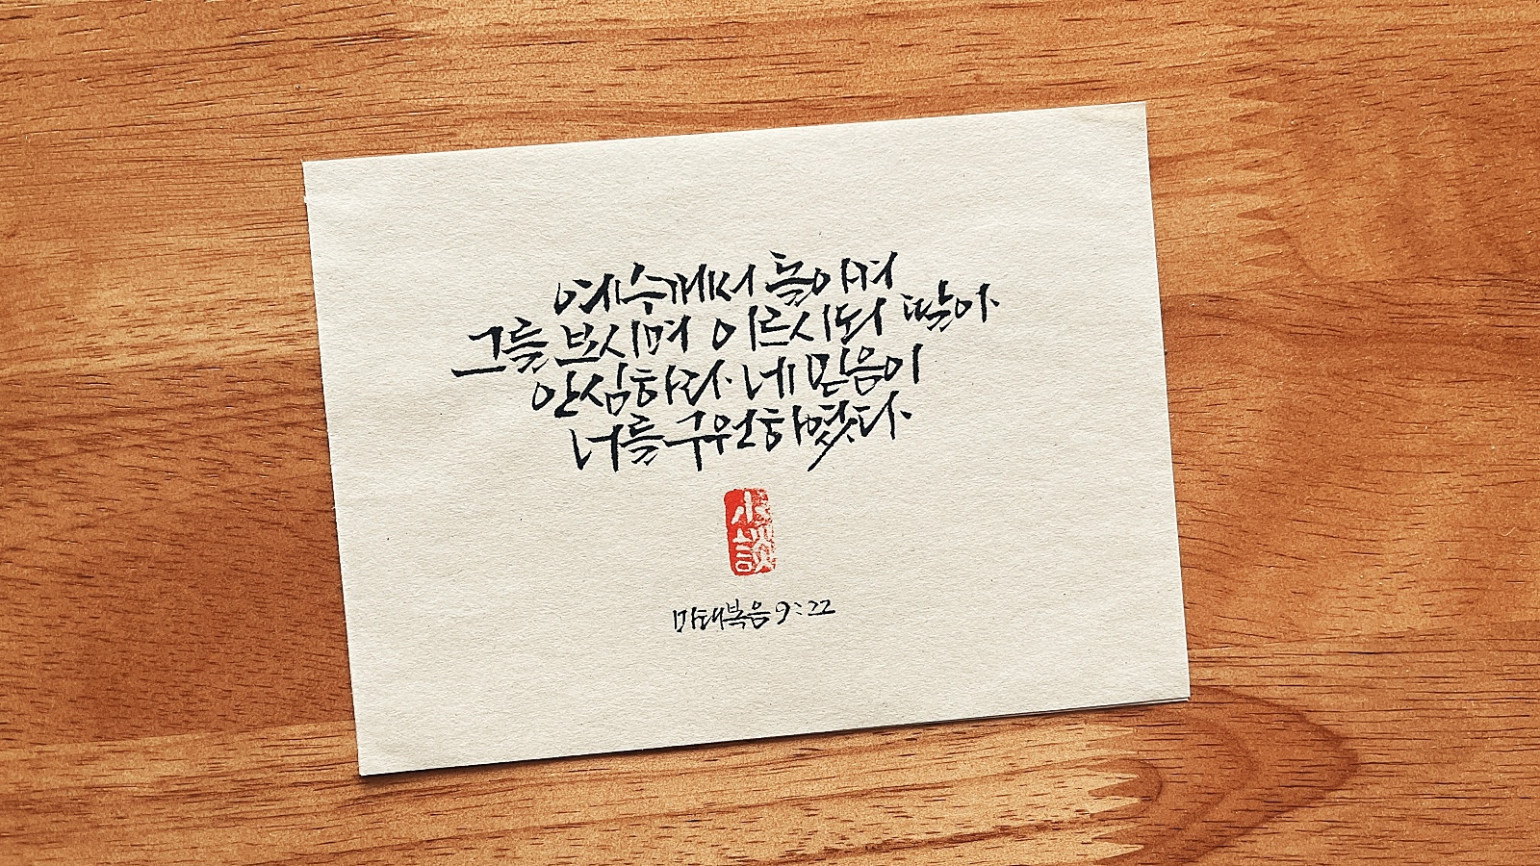 예수께서 돌이켜
그를 보시며 이르시되 딸아
안심하라 네 믿음이
너를 구원하였다
小談
마태복음 9:22